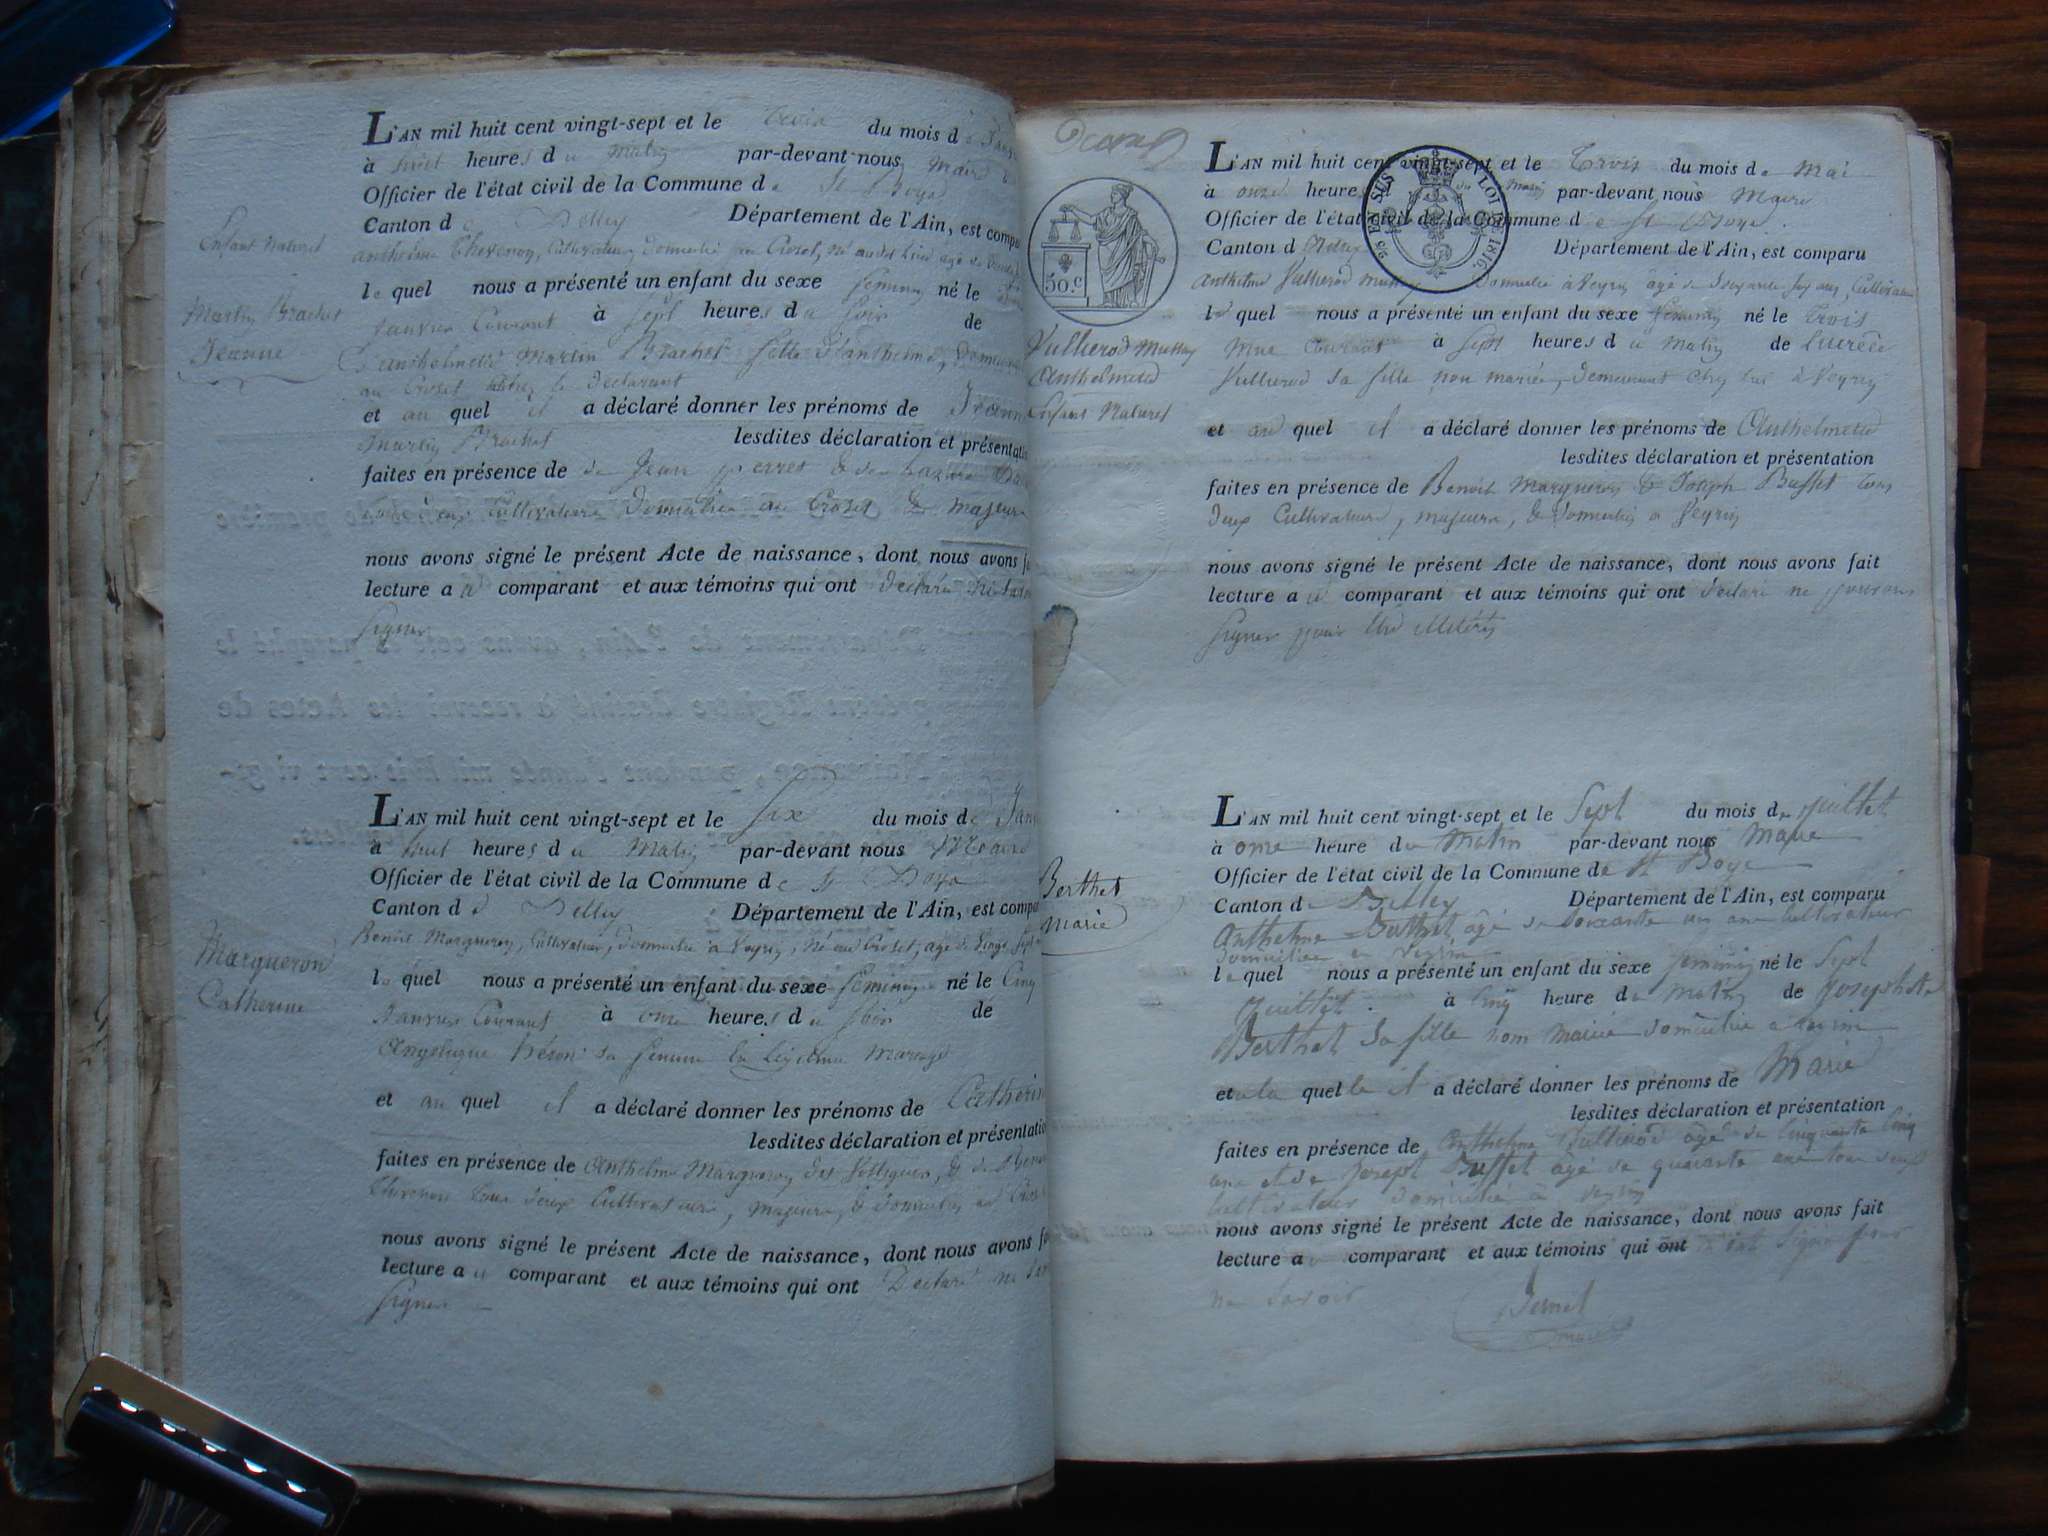 L'AN mil huit cent vingt-sept et le trois du mois de
à huit heures du Matin par-devant nous, Maire
Officier de l'état civil de la Commune de St Boys
Canton de Belley Département de l'Ain, est compa
Enfant Naturel
anthelme Chevron, Cultivateur, domicilié au Croset, né audit lieu agé de
le quel nous a présenté un enfant du sexe feminin né le
Martin Brachet
Jeanne
Janvier Courant à Sept heures du soir de
D'anthelmette Martin Brachet fille d'anthelme,
au Croset le declarant
et au quel il a déclaré donner les prénoms de Jeanne
Martin Brachet lesdites déclaration et présentatio
faites en présence de de Jean pierret & de
Cultivateurs Domiciliés au Croset & majeurs
nous avons signé le présent Acte de naissance, dont nous avons f
lecture au comparant et aux témoins qui ont déclaré ne
signer
L'AN mil huit cent vingt-sept et le Six du mois de Jan
à huit heures du Matin par-devant nous Maire
Officier de l'état civil de la Commune de St Boys
Canton de Belley Département de l'Ain, est compa
Benoit Margueron, Cultivateur, domicilié à Veyrin, Né au Croset, agé de Vingt Sept
Margueron
Catherine
le quel nous a présenté un enfant du sexe feminin né le Cinq
Janvier Courant à onze heures du Soir de
Angelique sa femme en Legitime Mariage
et au quel il a déclaré donner les prénoms de Catherin
lesdites déclaration et présentatio
faites en présence de Anthelme Margueron & de
Chevron tous deux Cultivateurs, majeurs, & domiciliés au
nous avons signé le présent Acte de naissance, dont nous avons f
lecture au comparant et aux témoins qui ont Déclaré ne
signer
L'AN mil huit cent vingt-sept et le Trois du mois de Mai
à onze heures du Matin par-devant nous Maire
Officier de l'état civil de la Commune de St Boys
Canton de Belley Département de l'Ain, est comparu
EN SUS LOI DE 1816.
50.c
anthelme Vullierod Domicilié à Veyrin agé de Soixante six ans, Cultivateur
le quel nous a présenté un enfant du sexe feminin né le Trois
Vullierod
Anthelmette
Enfant Naturel
Mai Courant à Sept heures du Matin de Lucrèce
Vullierod Sa fille non mariée, demeurant chez lui à Veyrin
et au quel il a déclaré donner les prénoms de Anthelmette
lesdites déclaration et présentation
faites en présence de Benoit Margueron & Joseph Buffet tous
deux Cultivateurs, majeurs, & domiciliés à Veyrin
nous avons signé le présent Acte de naissance, dont nous avons fait
lecture au comparant et aux témoins qui ont déclaré ne pouvoir
signer pour être illitérés
L'AN mil huit cent vingt-sept et le Sept du mois de juillet
à onze heure du Matin par-devant nous Maire
Officier de l'état civil de la Commune de St Boys
Canton de Belley Département de l'Ain, est comparu
Berthet
Marie
Anthelme Berthet âgé de soixante un ans cultivateur
domicilié à Veyrin
le quel nous a présenté un enfant du sexe feminin né le Sept
Juillet à Cinq heure du Matin de Josephete
Berthet Sa fille non mariée domiciliée a veyrin
et a la quelle il a déclaré donner les prénoms de Marie
lesdites déclaration et présentation
faites en présence de Anthelme Vullierod agé de Cinquante Cinq
ans et de Joseph Buffet âgé de quarante ans tous deux
cultivateur domicilié à veyrin
nous avons signé le présent Acte de naissance, dont nous avons fait
lecture au comparant et aux témoins qui ont n'ont signé pour
ne Savoir